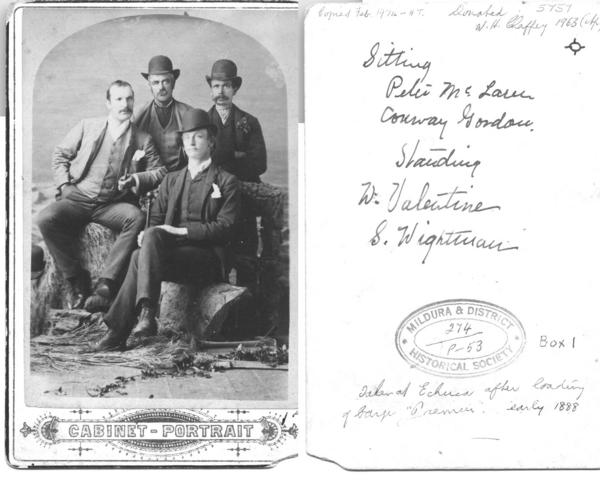 CABINET-PORTRAIT
Copied Feb. 1974 - H.T.
Donated 5757
W. H. Chaffey 1963
Sitting
Peter McLaren
Conway Gordon.
Standing
W. Valentine
S. Wightman
MILDURA & DISTRICT
274
P-53
HISTORICAL SOCIETY
Box 1
Taken at Echuca after loading
of barge "Premier". early 1888